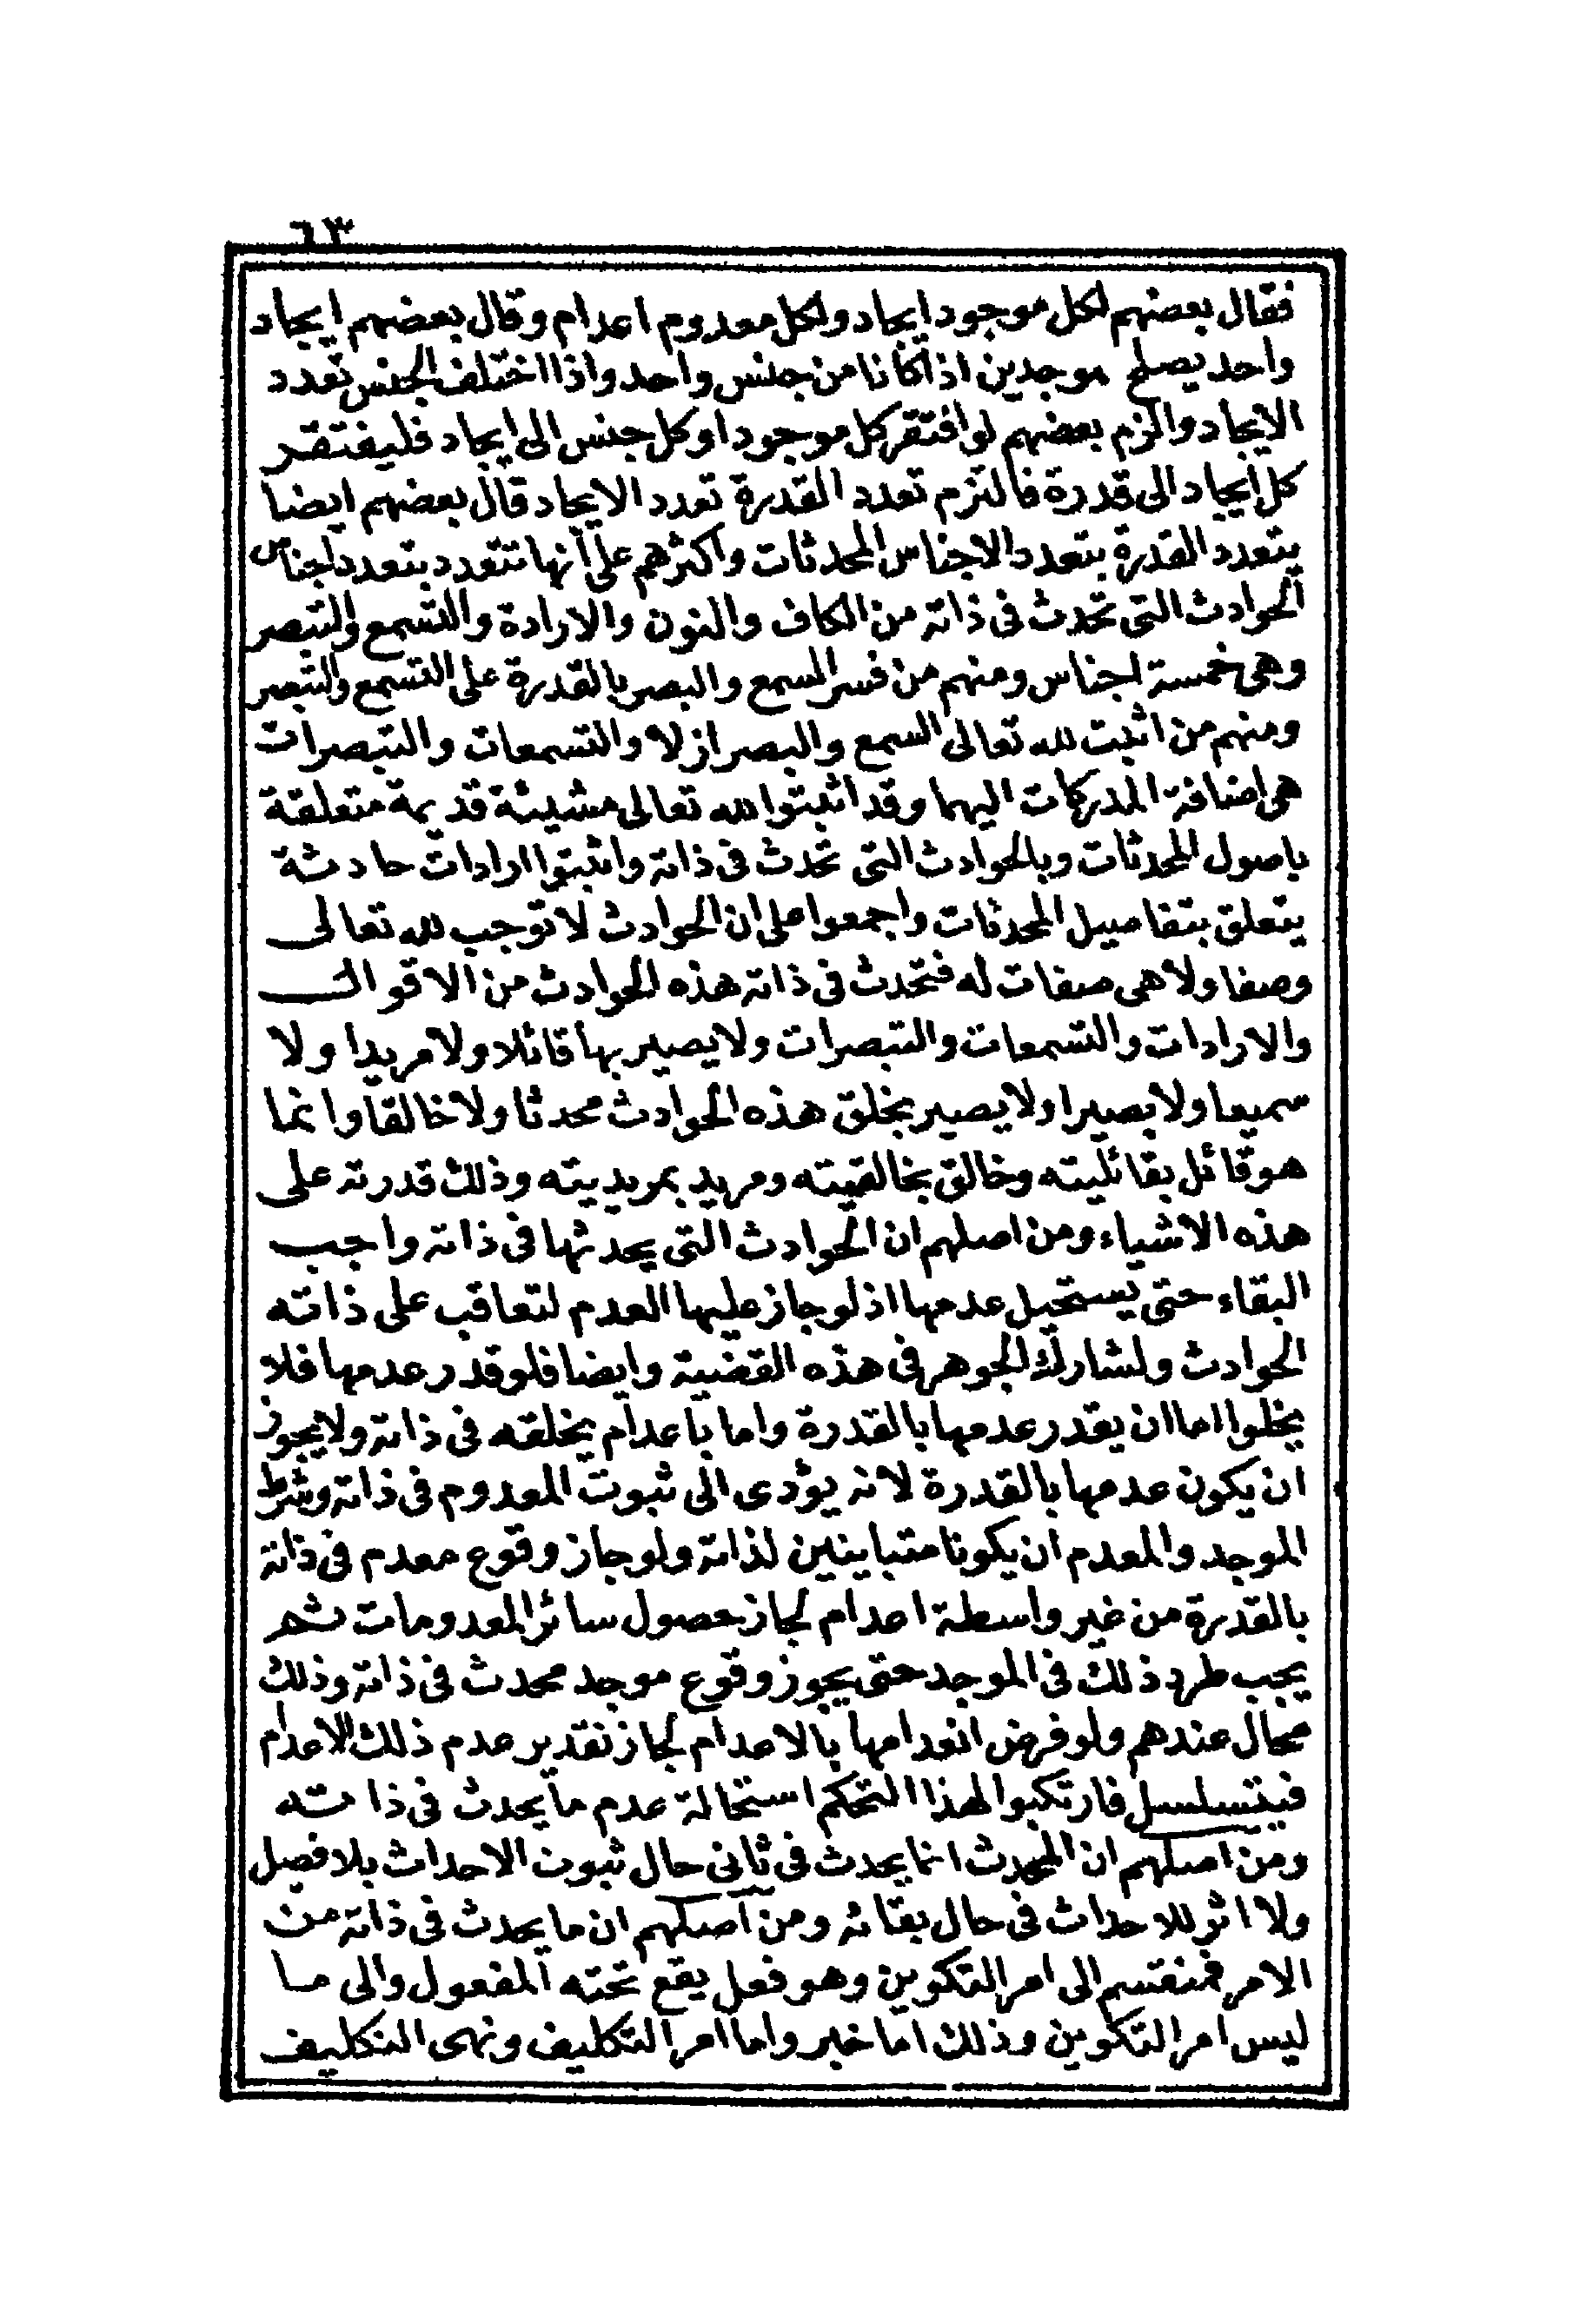 ٦٣
فقال بعضهم لكل موجود ايجاد ولكل معدوم اعدام وقال بعضهم ايجاد
واحد يصلح موجدين اذا كانا من جنس واحد واذا اختلف الجنس تعدد
الايجاد والزم بعضهم لو افتقر كل موجود او كل جنس الى ايجاد فليفتقر
كل ايجاد الى قدرة فالتزم تعدد القدرة تعدد الايجاد قال بعضهم ايضا
يتعدد القدرة بتعدد الاجناس المحدثات واكثرهم على أنها تتعدد بتعدد اجناس
الحوادث التى تحدث فى ذاته من الكاف والنون والارادة والتسمع والتبصر
وهى خمسة اجناس ومنهم من فسر السمع والبصر بالقدرة على التسمع والتبصر
ومنهم من اثبت لله تعالى السمع والبصر ازلا والتسمعات والتبصرات
هى اضافة المدركات اليهما وقد اثبتوا لله تعالى مشيئة قديمة متعلقة
باصول المحدثات وبالحوادث التى تحدث فى ذاته واثبتوا ارادات حادثة
يتعلق بتفاصيل المحدثات واجمعوا على ان الحوادث لا توجب لله تعالى
وصفا ولا هى صفات له فتحدث فى ذاته هذه الحوادث من الاقوال
والارادات والتسمعات والتبصرات ولا يصير بها قائلا ولا مريدا ولا
سميعا ولا بصيرا ولا يصير بخلق هذه الحوادث محدثا ولا خالقا وانما
هو قائل بقائليته وخالق بخالقيته ومريد بمريديته وذلك قدرته على
هذه الاشياء ومن اصلهم ان الحوادث التى يحدثها فى ذاته واجب
البقاء حتى يستحيل عدمها اذ لو جاز عليها العدم لتعاقب على ذاته
الحوادث ولشارك الجوهر فى هذه القضية وايضا فلو قدر عدمها فلا
يخلوا اما ان يقدر عدمها بالقدرة واما باعدام يخلقه فى ذاته ولا يجوز
ان يكون عدمها بالقدرة لانه يؤدى الى ثبوت المعدوم فى ذاته وشرط
الموجد والمعدم ان يكونا متباينين لذاته ولو جاز وقوع معدم فى ذاته
بالقدرة من غير واسطة اعدام لجاز حصول سائر المعدومات ثم
يجب طرد ذلك فى الموجد حتى يجوز وقوع موجد محدث فى ذاته وذلك
محال عندهم ولو فرض انعدامها بالاعدام لجاز تقدير عدم ذلك الاعدام
فيتسلسل فارتكبوا لهذا التحكم استحالة عدم ما يحدث فى ذاته
ومن اصلهم ان المحدث انما يحدث فى ثانى حال ثبوت الاحداث بلا فصل
ولا اثر للاحداث فى حال بقائه ومن اصلهم ان ما يحدث فى ذاته من
الامر فمنقسم الى امر التكوين وهو فعل يقع تحته المفعول والى ما
ليس امر التكوين وذلك اما خبر واما امر التكليف ونهى التكليف